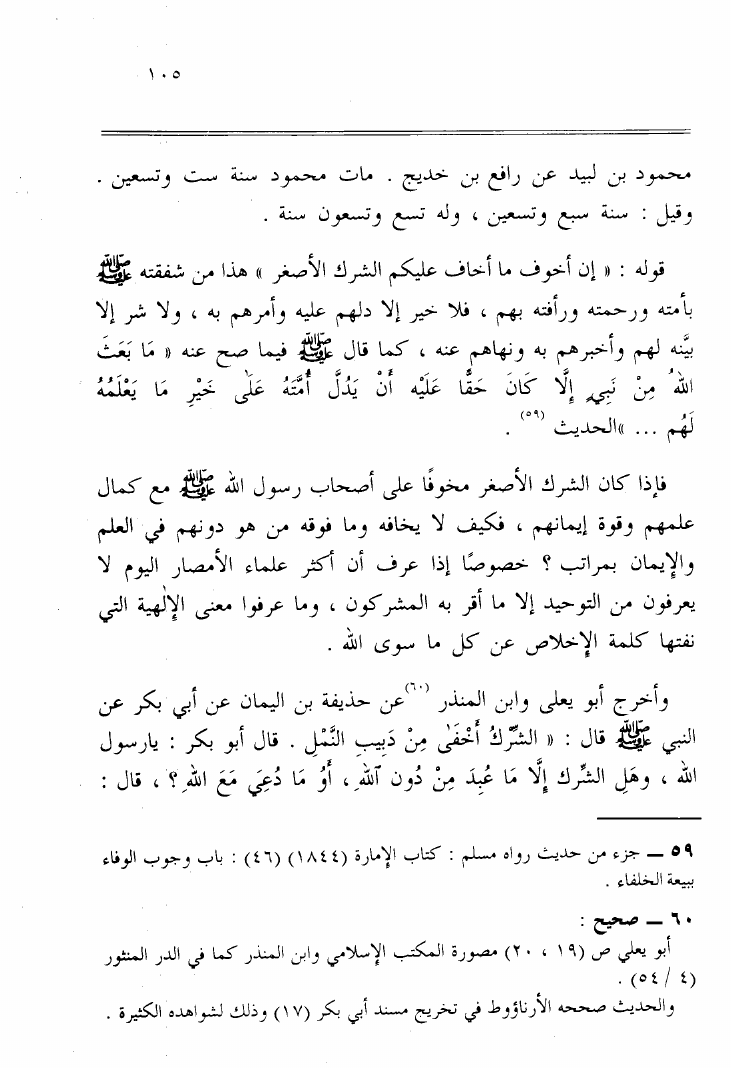 ١٠٥
محمود بن لبيد عن رافع بن خديج . مات محمود سنة ست وتسعين .
وقيل : سنة سبع وتسعين ، وله تسع وتسعون سنة .
قوله : « إن أخوف ما أخاف عليكم الشرك الأصغر » هذا من شفقته ﷺ
بأمته ورحمته ورأفته بهم ، فلا خير إلا دلهم عليه وأمرهم به ، ولا شر إلا
بيَّنه لهم وأخبرهم به ونهاهم عنه ، كما قال ﷺ فيما صح عنه « مَا بَعَثَ
اللهُ مِنْ نَبِيٍ إِلَّا كَانَ حَقًّا عَلَيْه أَنْ يَدُلَّ أُمَّتَهُ عَلَى خَيْرِ مَا يَعْلَمُهُ
لَهُم ... »الحديث (٥٩) .
فإذا كان الشرك الأصغر مخوفًا على أصحاب رسول الله ﷺ مع كمال
علمهم وقوة إيمانهم ، فكيف لا يخافه وما فوقه من هو دونهم في العلم
والإيمان بمراتب ؟ خصوصًا إذا عرف أن أكثر علماء الأمصار اليوم لا
يعرفون من التوحيد إلا ما أقر به المشركون ، وما عرفوا معنى الإلٰهية التي
نفتها كلمة الإخلاص عن كل ما سوى الله .
وأخرج أبو يعلى وابن المنذر (٦٠)عن حذيفة بن اليمان عن أبي بكر عن
النبي ﷺ قال : « الشِّركُ أَخْفَى مِنْ دَبِيبِ النَّمْلِ . قال أبو بكر : يارسول
الله ، وهَلِ الشِّرك إِلَّا مَا عُبِدَ مِنْ دُون اللهِ، أَوُ مَا دُعِيَ مَعَ اللهِ ؟ ، قال :
٥٩ ــ جزء من حديث رواه مسلم : كتاب الإمارة (١٨٤٤) (٤٦) : باب وجوب الوفاء
ببيعة الخلفاء .
٦٠ ــ صحيح :
أبو يعلي ص (١٩ ، ٢٠) مصورة المكتب الإسلامي وابن المنذر كما في الدر المنثور
(٤ / ٥٤) .
والحديث صححه الأرناؤوط في تخريج مسند أبي بكر (١٧) وذلك لشواهده الكثيرة .